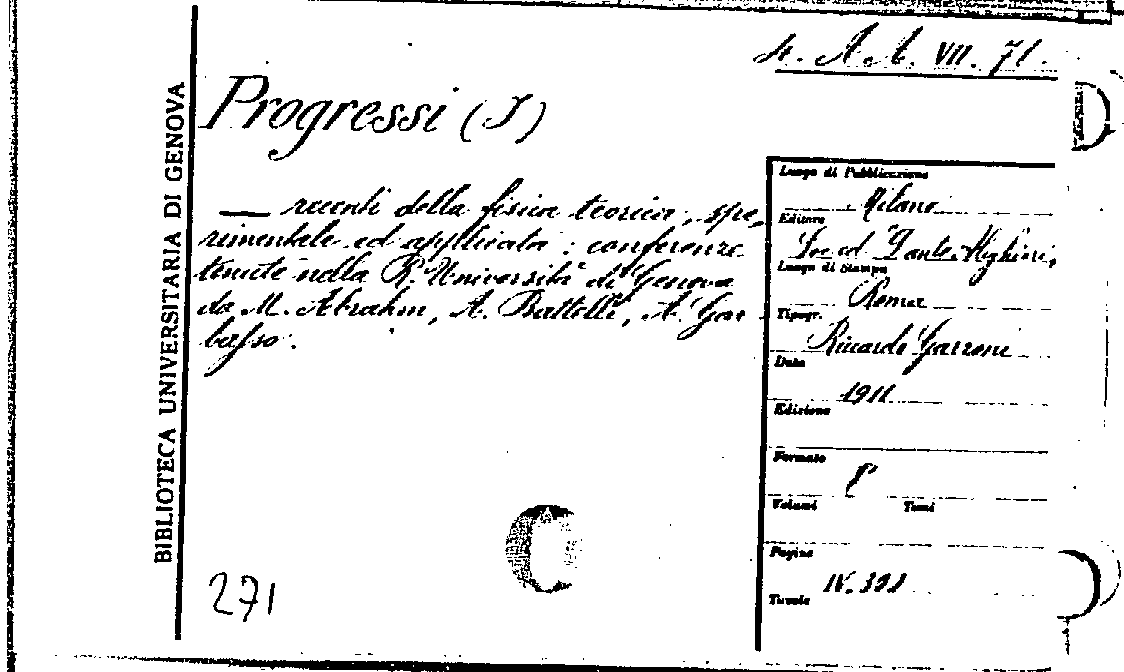 4. A A. VII. 71.
BIBLIOTECA UNIVERSITARIA DI GENOVA
Progressi (I)
— recenti della fisica teorica, spe-
rimentale ed applicata: conferenze
tenute nella R. Università di Genova
da M. Abrahm, A. Battelli, A. Gar-
basso.
271
Luogo di Pubblicazione
Milano
Editore
Soc. ed. Dante Alighieri,
Luogo di Stampa
Roma
Tipogr.
Riccardo Garroni
Data
1911
Edizione
Formato
8°
Volumi Tomi
Pagine
IV.
Tavole